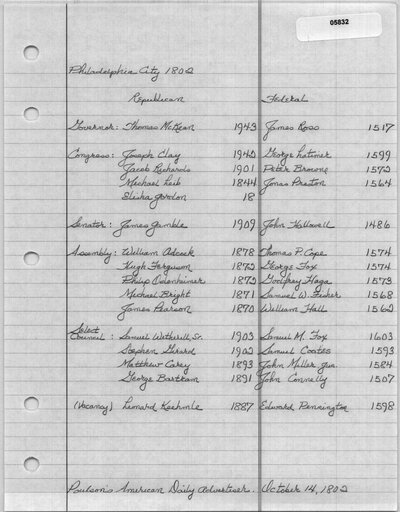 05832
Philadelphia City 1802
Republican Federal
Governor: Thomas McKean 1943 James Ross 1517
Congress: Joseph Clay 1942 George Latimer 1599
Jacob Richards 1901 Peter Browne 1572
Michael Leib 1844 Jonas Preston 1564
Elisha Gordon 18
Senator: James Gamble 1909 John Hallowell 1486
Assembly: William Adcock 1878 Thomas P. Cope 1574
Hugh Ferguson 1872 George Fox 1574
Philip Odenheimer 1872 Godfrey Haga 1573
Michael Bright 1871 Samuel W. Fisher 1568
James Pearson 1870 William Hall 1562
Select
Council: Samuel Witherill, Sr. 1903 Samuel M. Fox 1603
Stephen Girard 1902 Samuel Coates 1593
Matthew Carey 1893 John Miller Jun. 1584
George Bartram 1891 John Connelly 1507
(Vacancy) Leonard Keehmle 1887 Edward Pennington 1598
Poulson's American Daily Advertiser. October 14, 1802